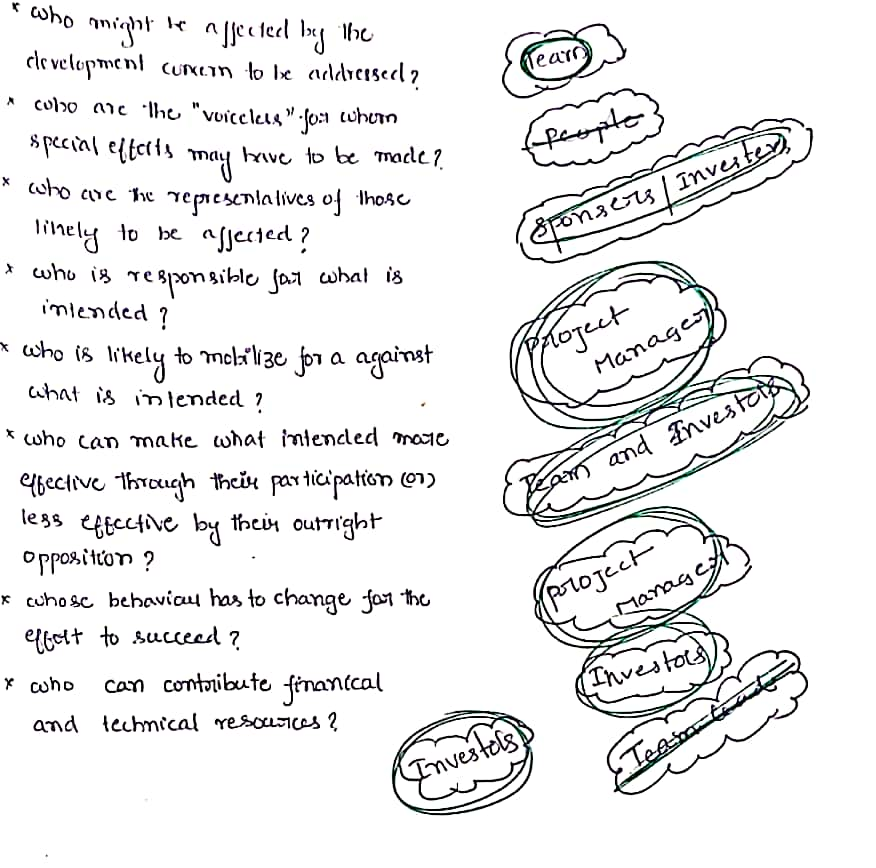 * who might be affected by the
development concern to be addressed?
* who are the "voiceless" for whom
special efforts may have to be made?
* who are the representatives of those
likely to be affected?
* who is responsible for what is
intended?
* who is likely to mobilize for a against
what is intended?
* who can make what intended more
effective through their participation (or)
less effective by their outright
opposition?
* whose behaviour has to change for the
effort to succeed?
* who can contribute financial
and technical resources?
Team
People
Sponsers / Investers
Project
Manager
Team and Investors
Project
Manager
Investors
Team
Investors